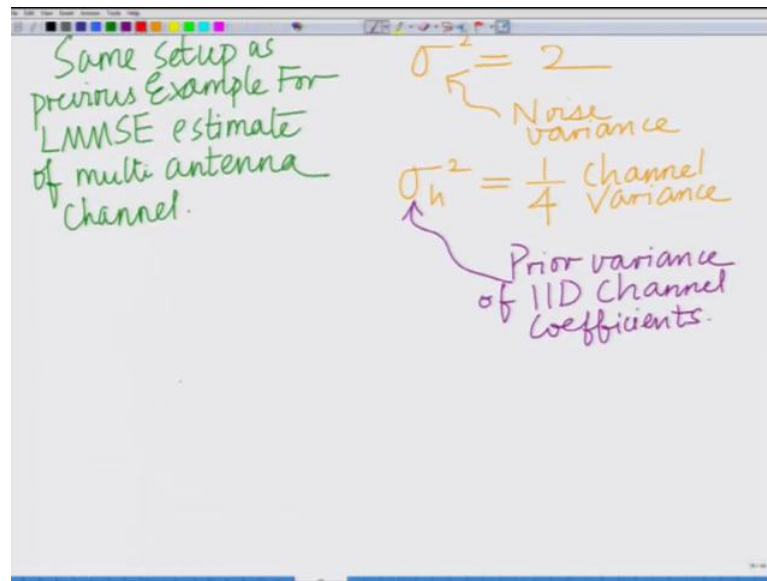 Same setup as
previous Example For
LMMSE estimate
of multi antenna
Channel.
σ² = 2
Noise
variance
σh² = 1/4 Channel
Variance
Prior variance
of IID Channel
Coefficients.